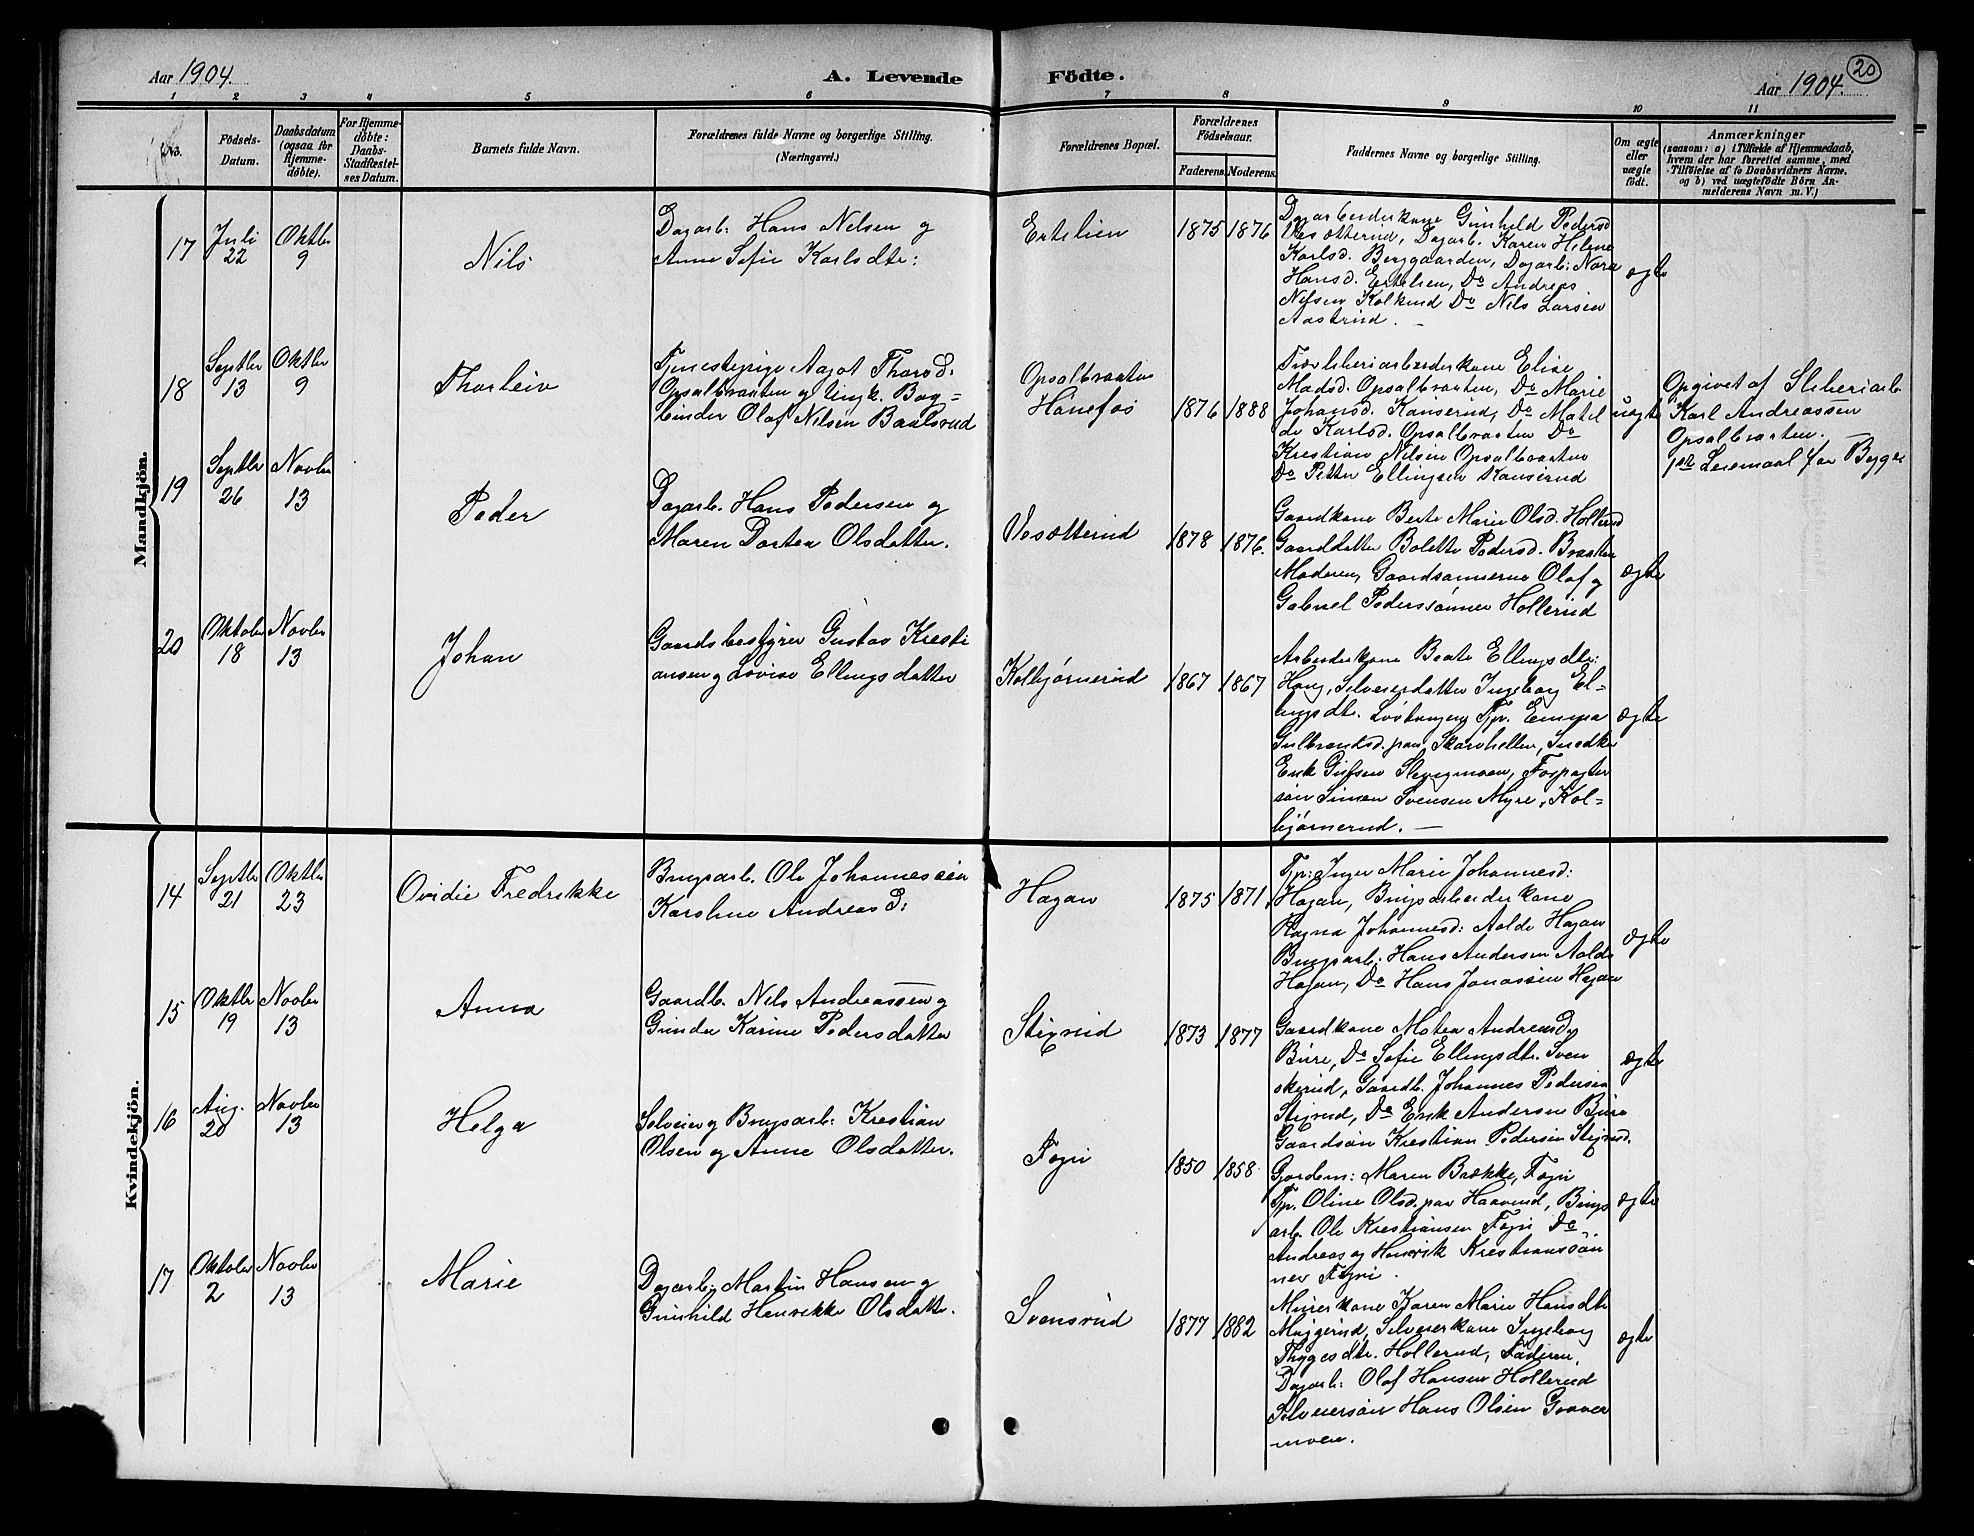 Aar 1904.
A. Levende Födte.
Aar 1904. 20
1 2 3 4 5 6 7 8 9 10 11
No.
Födsels-
Datum.
Daabsdatum
(ogsaa för
Hjemme-
döbte).
For Hjemme-
döbte:
Daabs-
Stadfæstel-
ses Datum.
Barnets fulde Navn.
Forældrenes fulde Navne og borgerlige Stilling.
(Næringsvei.)
Forældrenes Bopæl.
Forældrenes
Födselsaar.
Faderens. Moderens.
Faddernes Navne og borgerlige Stilling.
Om ægte
eller
uægte
födt.
Anmærkninger
(saasom: a) i Tilfælde af Hjemmedaab,
hvem der har forrettet samme, med
Tilföielse af to Daabsvidners Navne.
og b) ved uægtefödte Börn An-
melderens Navn m. V.)
Mandkjön.
17
Juli
22
Oktbr
9
Nils
Dagarb. Hans Nilsen og
Anne Sofie Karlsdtr:
Ertelien
1875 1876
Dagarbeiderkone Gunhild Pedersd
Vesætterud, Dagarb. Karen Helene
Karlsd. Berggaarden, Dagarb: Nora
Hansd. Ertelien, Do Andreas
Nilsen Kolkind Do Nils Larsen
Aastrud.
ægte
18
Septbr
13
Oktbr
9
Thorleiv
Tjenestepige Aagot Thorsd:
Opsalbraaten og Ungk. Bog=
binder Olaf Nilsen Baalsrud
Opsalbraaten
Hønefos
1876 1888
Træsliberiarbeiderkone Elise
Madsd. Opsalbraaten, Do Marie
Johansd. Kanserud, Do Matil
de Karlsd. Opsalbraaten Do
Kristian Nilsen Opsalbraaten
Do Petter Ellingsen Kanserud
uægte
Opgivet af Sliberiarb
Karl Andreassen
Opsalbraaten.
1ste Leiermaal for Begge
19
Septbr
26
Novbr
13
Peder
Dagarb. Hans Pedersen og
Maren Dortea Olsdatter.
Vesætterud
1878 1876.
Gaardkone Berte Marie Olsd. Hollerud
Gaarddatter Bolette Pedersd. Braaten
Moderen, Gaardsønnerne Olaf og
Gabriel Pederssønner Hollerud
ægte
20
Oktober
18
Novbr
13
Johan
Gaardsbestyrer Gustav Kresti
ansen og Lovise Ellingsdatter
Kolbjørnerud
1867 1867
Arbeiderkone Beate Ellingsdtr:
Haug, Selveierdatter Ingeborg El=
lingsdtr. Løvhaugen, Tjp. Emma
Gulbrandsd. paa Skarvhellen, Snedker
Erik Gulsen Slevigmoen, Forpagter
søn Simen Svensen Myre, Kol=
bjørnerud.
ægte
Kvindekjön.
14
Septbr
21
Oktbr
23
Ovidie Fredrikke
Brugsarb. Ole Johannessen
Karoline Andreas D:
Hagan
1875 1871,
Tjp: Inger Marie Johannesd:
Hagan, Brugsarbeiderkone
Ragna Johannesd: Aalde Hagan
Brugsarb. Hans Andersen Aalde
Hagan, Do Hans Jonassen Hagan
ægte
15
Oktbr
19
Novbr
13
Anna
Gaardb. Nils Andreassen og
Gunda Karine Pedersdatter
Stixrud
1873 1877
Gaardkone Matea Andreasd.
Bure, Do Sofie Ellingsdtr. Sven
skerud, Gaardb. Johannes Pedersen
Stixrud, Do Erik Andersen Bure
Gaardsøn Krestian Pedersen Stixrud.
ægte
16
Aug.
20
Novbr
13
Helga
Selveier og Brugsarb: Krestian
Olsen og Anne Olsdatter.
Fogri
1850 1858
Gjordem: Maren Brække, Fogri
Tjp. Oline Olsd. paa Haaverud, Brugs
arb. Ole Krestiansen Fogri Do
Andreas og Henrik Krestianssøn
ner Fogri.
ægte
17
Oktober
2
Novbr
13
Marie
Dagarb: Martin Hansen og
Gunhild Henrikke Olsdatter.
Svensrud
1877 1882
Murerkone Karen Marie Hansdtr
Muggerud, Selveierkone Ingeborg
Thygesdtr. Hollerud, Faderen,
Dagarb: Olaf Hansen Hollerud
Selveiersøn Hans Olsen Graver
moen.
ægte